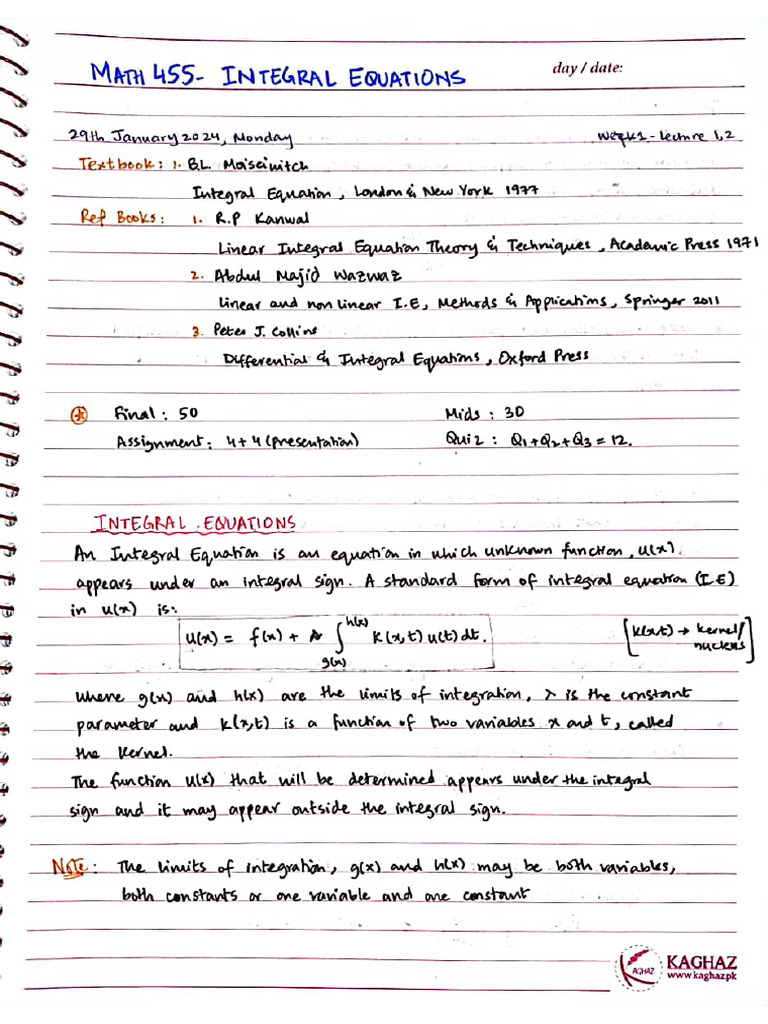 MATH 455- INTEGRAL EQUATIONS
day / date:
29th January 2024, Monday
Week1 - Lecture 1,2
Textbook: 1. B.L. Moiseiwitch
Integral Equation, London & New York 1977
Ref Books: 1. R.P Kanwal
Linear Integral Equation Theory & Techniques, Academic Press 1971
2. Abdul Majid Wazwaz
Linear and non linear I.E, Methods & Applications, Springer 2011
3. Peter J. Collins
Differential & Integral Equations, Oxford Press
Final: 50
Mids: 30
Assignment: 4+4 (Presentation)
Quiz: Q1+Q2+Q3=12.
INTEGRAL EQUATIONS
An Integral Equation is an equation in which unknown function, u(x)
appears under an integral sign. A standard form of integral equation (I.E)
in u(x) is:
u(x) = f(x) + λ ∫_{g(x)}^{h(x)} k(x,t) u(t) dt.
[k(x,t) → kernel/
nucleus]
where g(x) and h(x) are the limits of integration, λ is the constant
parameter and k(x,t) is a function of two variables x and t, called
the kernel.
The function u(x) that will be determined appears under the integral
sign and it may appear outside the integral sign.
Note: The limits of integration, g(x) and h(x) may be both variables,
both constants or one variable and one constant
KAGHAZ
www.kaghaz.pk